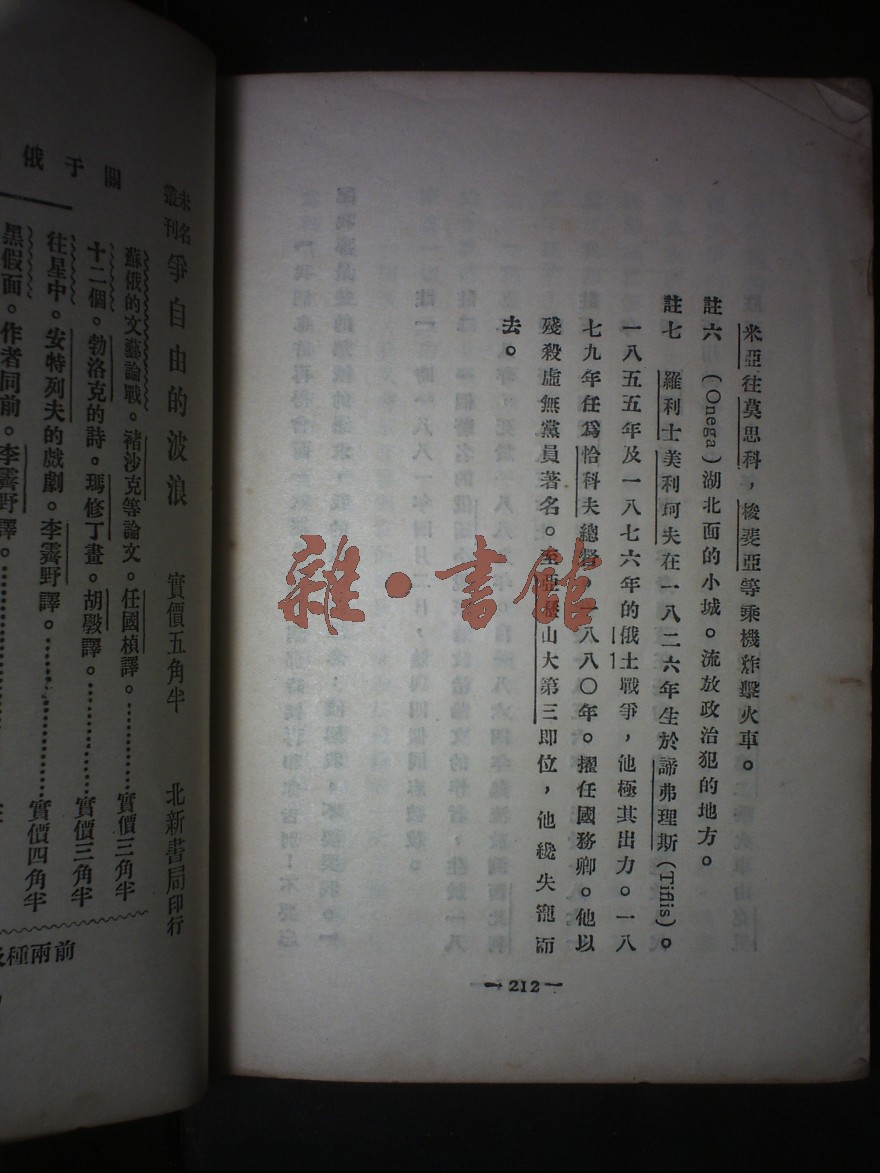 米亞往莫思科，梭斐亞等乘機炸擊火車。
註六 (Onega)湖北面的小城。流放政治犯的地方。
註七 羅利士美利珂夫在一八二六年生於諦弗理斯(Tiflis)。
一八五五年及一八七六年的俄土戰爭，他極其出力。一八
七九年任爲恰科夫總督。一八八〇年。擢任國務卿。他以
殘殺虛無黨員著名。至亞歷山大第三即位，他纔失寵而
去。
—212—
雜·書館
關于俄
未名叢刊 爭自由的波浪 實價五角半 北新書局印行
蘇俄的文藝論戰。褚沙克等論文。任國楨譯。 實價三角半
十二個。勃洛克的詩。瑪修丁畫。胡斅譯。 實價三角半
往星中。安特列夫的戲劇。李霽野譯。 實價四角半
黑假面。作者同前。李霽野譯。
前兩種